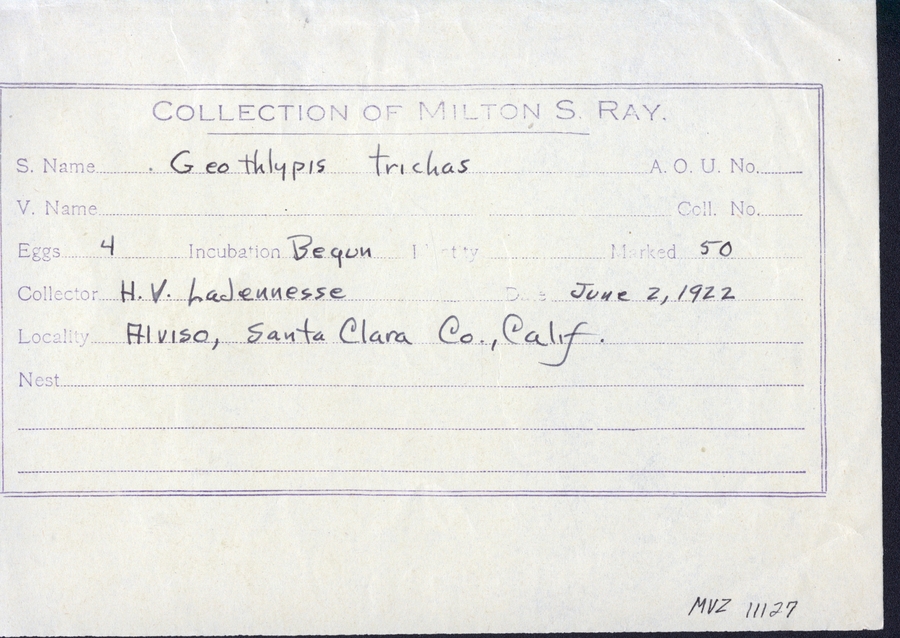 COLLECTION OF MILTON S. RAY.
S. Name Geothlypis trichas A. O. U. No.
V. Name Coll. No.
Eggs 4 Incubation Begun Marked 50
Collector H. V. LaJennesse June 2, 1922
Locality Alviso, Santa Clara Co., Calif.
Nest
MVZ 11127